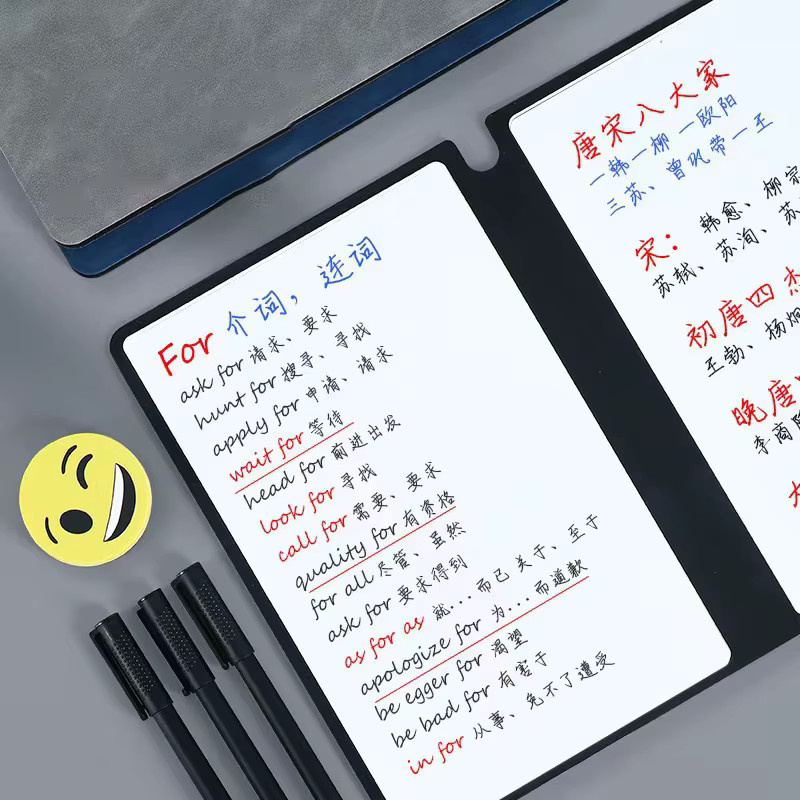 For 介词，连词
ask for 请求、要求
hunt for 搜寻、寻找
apply for 申请、请求
wait for 等待
head for 前进出发
look for 寻找
call for 需要、要求
quality for 有资格
for all 尽管、虽然
ask for 要求得到
as for as 就...而已 关于、至于
apologize for 为...而道歉
be egger for 渴望
be bad for 有害于
in for 从事、免不了遭受
唐宋八大家
一韩一柳一欧阳
三苏、曾巩带一王
宋：韩愈、柳宗
苏轼、苏洵、苏
初唐四杰
王勃、杨炯
晚唐
李商隐